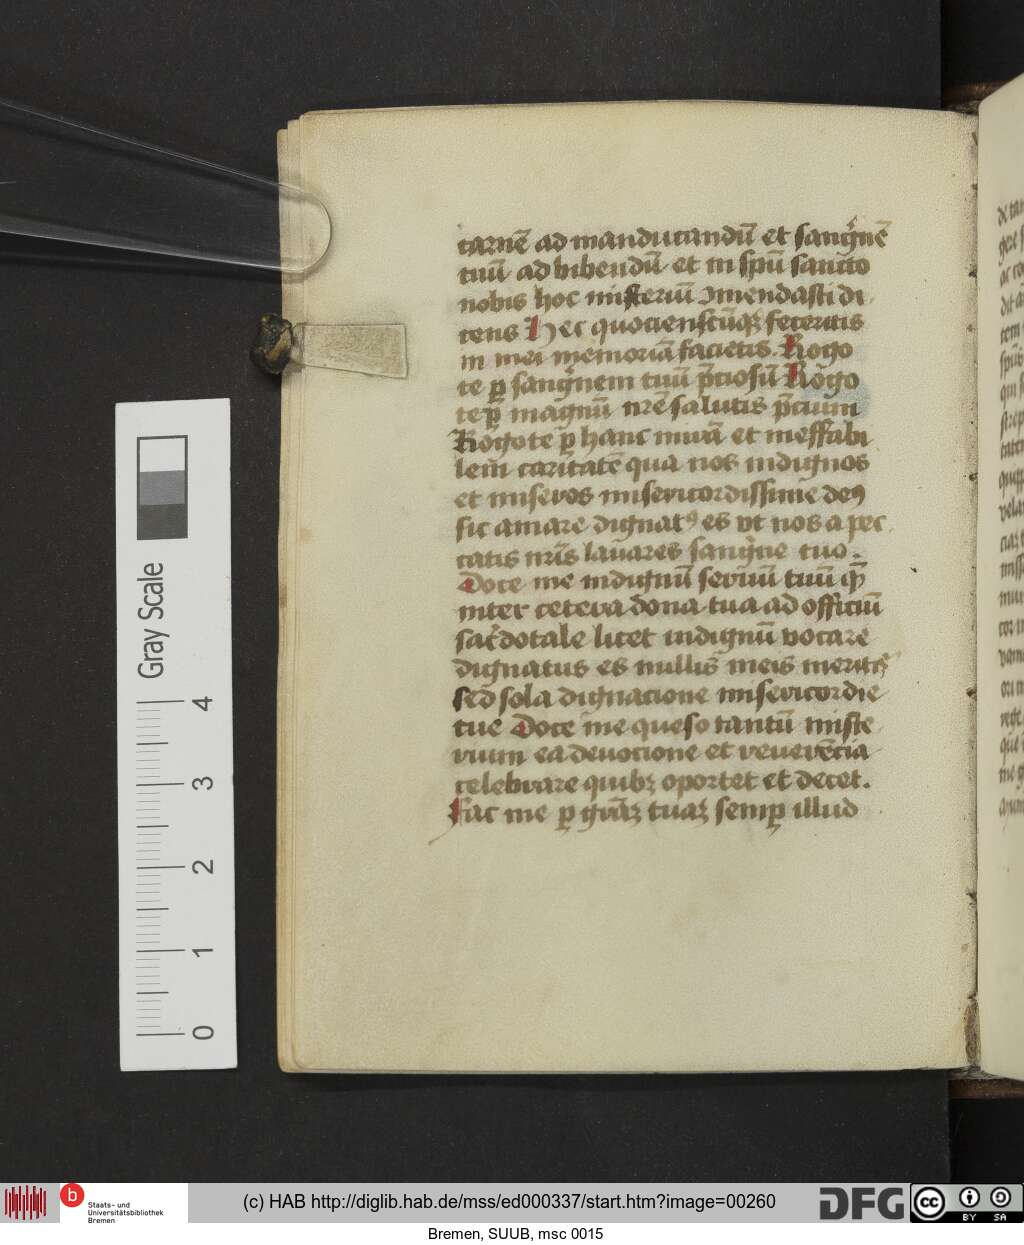 carnē ad manducandū et sangͥnē
tuū ad bibendū et in spū sancto
nobis hoc misteriū ꝯmendasti di
cens Hec quociensc̄ūqꝫ feceritis
in mei memoriā facietis. Rogo
te ꝑ sangͥnem tuū p̄ciosū Rogo
te ꝑ magnū nr̄e salutis p̄cium
Rogo te ꝑ hanc mirā et ineffabi
lem̄ caritatē qua nos indignos
et miseros misericordissime deꝰ
sic amare dignatꝰ es vt nos a pec
catis nr̄is lauares sangͥne tuo.
Doce me indignū seruū tuū qē
inter cetera dona tua ad officiū
sac̄dotale licet indignū vocare
dignatus es nullis meis meritꝭ
sed sola dignacione misericordie
tue Doce me queso tantū miste
rium ea deuocione et reuerēcia
celebrare quibꝫ oportet et decet.
Fac me ꝑ gr̄aꝫ tuaꝫ semꝑ illud
Gray Scale
4
3
2
1
0
b
Staats- und
Universitätsbibliothek
Bremen
(c) HAB http://diglib.hab.de/mss/ed000337/start.htm?image=00260
DFG
cc
BY SA
Bremen, SUUB, msc 0015